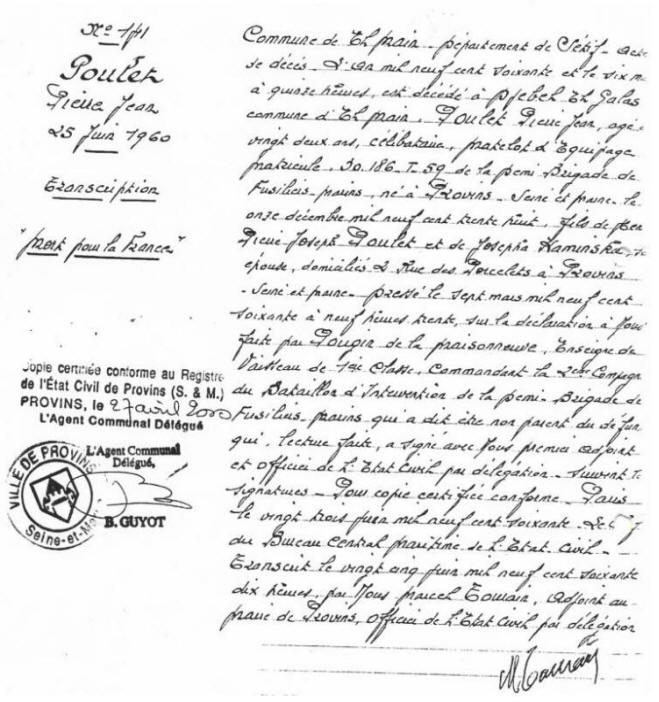 N° 141
Poulet
Pierre Jean
25 Juin 1960
Transcription
"Mort pour la France"
Copie certifiée conforme au Registre
de l'État Civil de Provins (S. & M.)
PROVINS, le 27 avril 2000
L'Agent Communal Délégué
L'Agent Communal
Délégué,
VILLE DE PROVINS
Seine-et-M
B. GUYOT
Commune de El Main. Département de Sétif. Acte
de décès. L'an mil neuf cent soixante et le six m
à quinze heures, est décédé à Djebel El Galas
commune d'El Main. Poulet Pierre Jean, agé
vingt deux ans, célibataire, matelot d'Equipage
matricule. 30.186.T.59 de la Demi Brigade de
Fusiliers-marins, né à Provins. Seine et Marne. le
onze décembre mil neuf cent trente huit, fils de
Pierre Joseph Poulet et de Josepha Kaminska, s
épouse, domiciliés 2 Rue des Porcelets à Provins
- Seine et Marne - Dressé le sept mars mil neuf cent
soixante à neuf heures trente, sur la déclaration à Nous
faite par Pougin de la Maisonneuve, Enseigne de
Vaisseau de 1ère Classe, Commandant la 2ème Compagn
du Bataillon d'Intervention de la Demi-Brigade de
Fusiliers-Marins qui a dit être non parent du défun
qui, lecture faite, a signé avec Nous premier adjoint
et officier de l'Etat Civil par délégation - Suivent l
signatures - Pour copie certifiée conforme - Paris
le vingt trois juin mil neuf cent soixante - Le
du Bureau Central Maritime de l'Etat Civil -
Transcrit le vingt cinq juin mil neuf cent soixante
dix heures, par Nous Marcel, Adjoint au
Maire de Provins, officier de l'Etat Civil par délégation